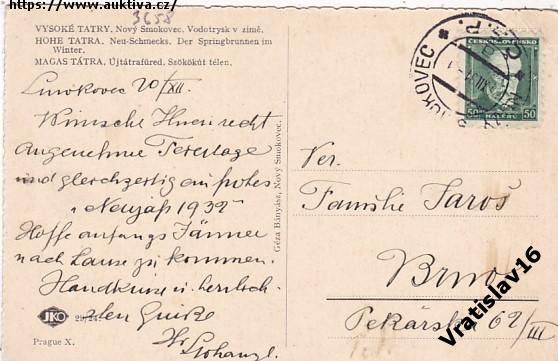 https://www.auktiva.cz/
3658
VYSOKÉ TATRY, Nový Smokovec. Vodotrysk v zimě.
HOHE TATRA, Neu-Schmecks. Der Springbrunnen im
Winter.
MAGAS TÁTRA, Újtátrafüred. Szökökút télen.
Smokovec 20/XII.
Wünsche Ihnen recht
angenehme Feiertage
und gleichzeitig ein frohes
"Neujahr 1932"
Hoffe anfangs Jänner
nach Hause zu kommen.
Handküsse u. herzlich
Géza Bányász, Nový Smokovec.
JKO
Prague X.
SMOKOVEC
ČESKOSLOVENSKO
50 HALÉŘŮ 50
Ver.
Familie Jaroš
Brno
Pekárska 62/III
Vratislav16